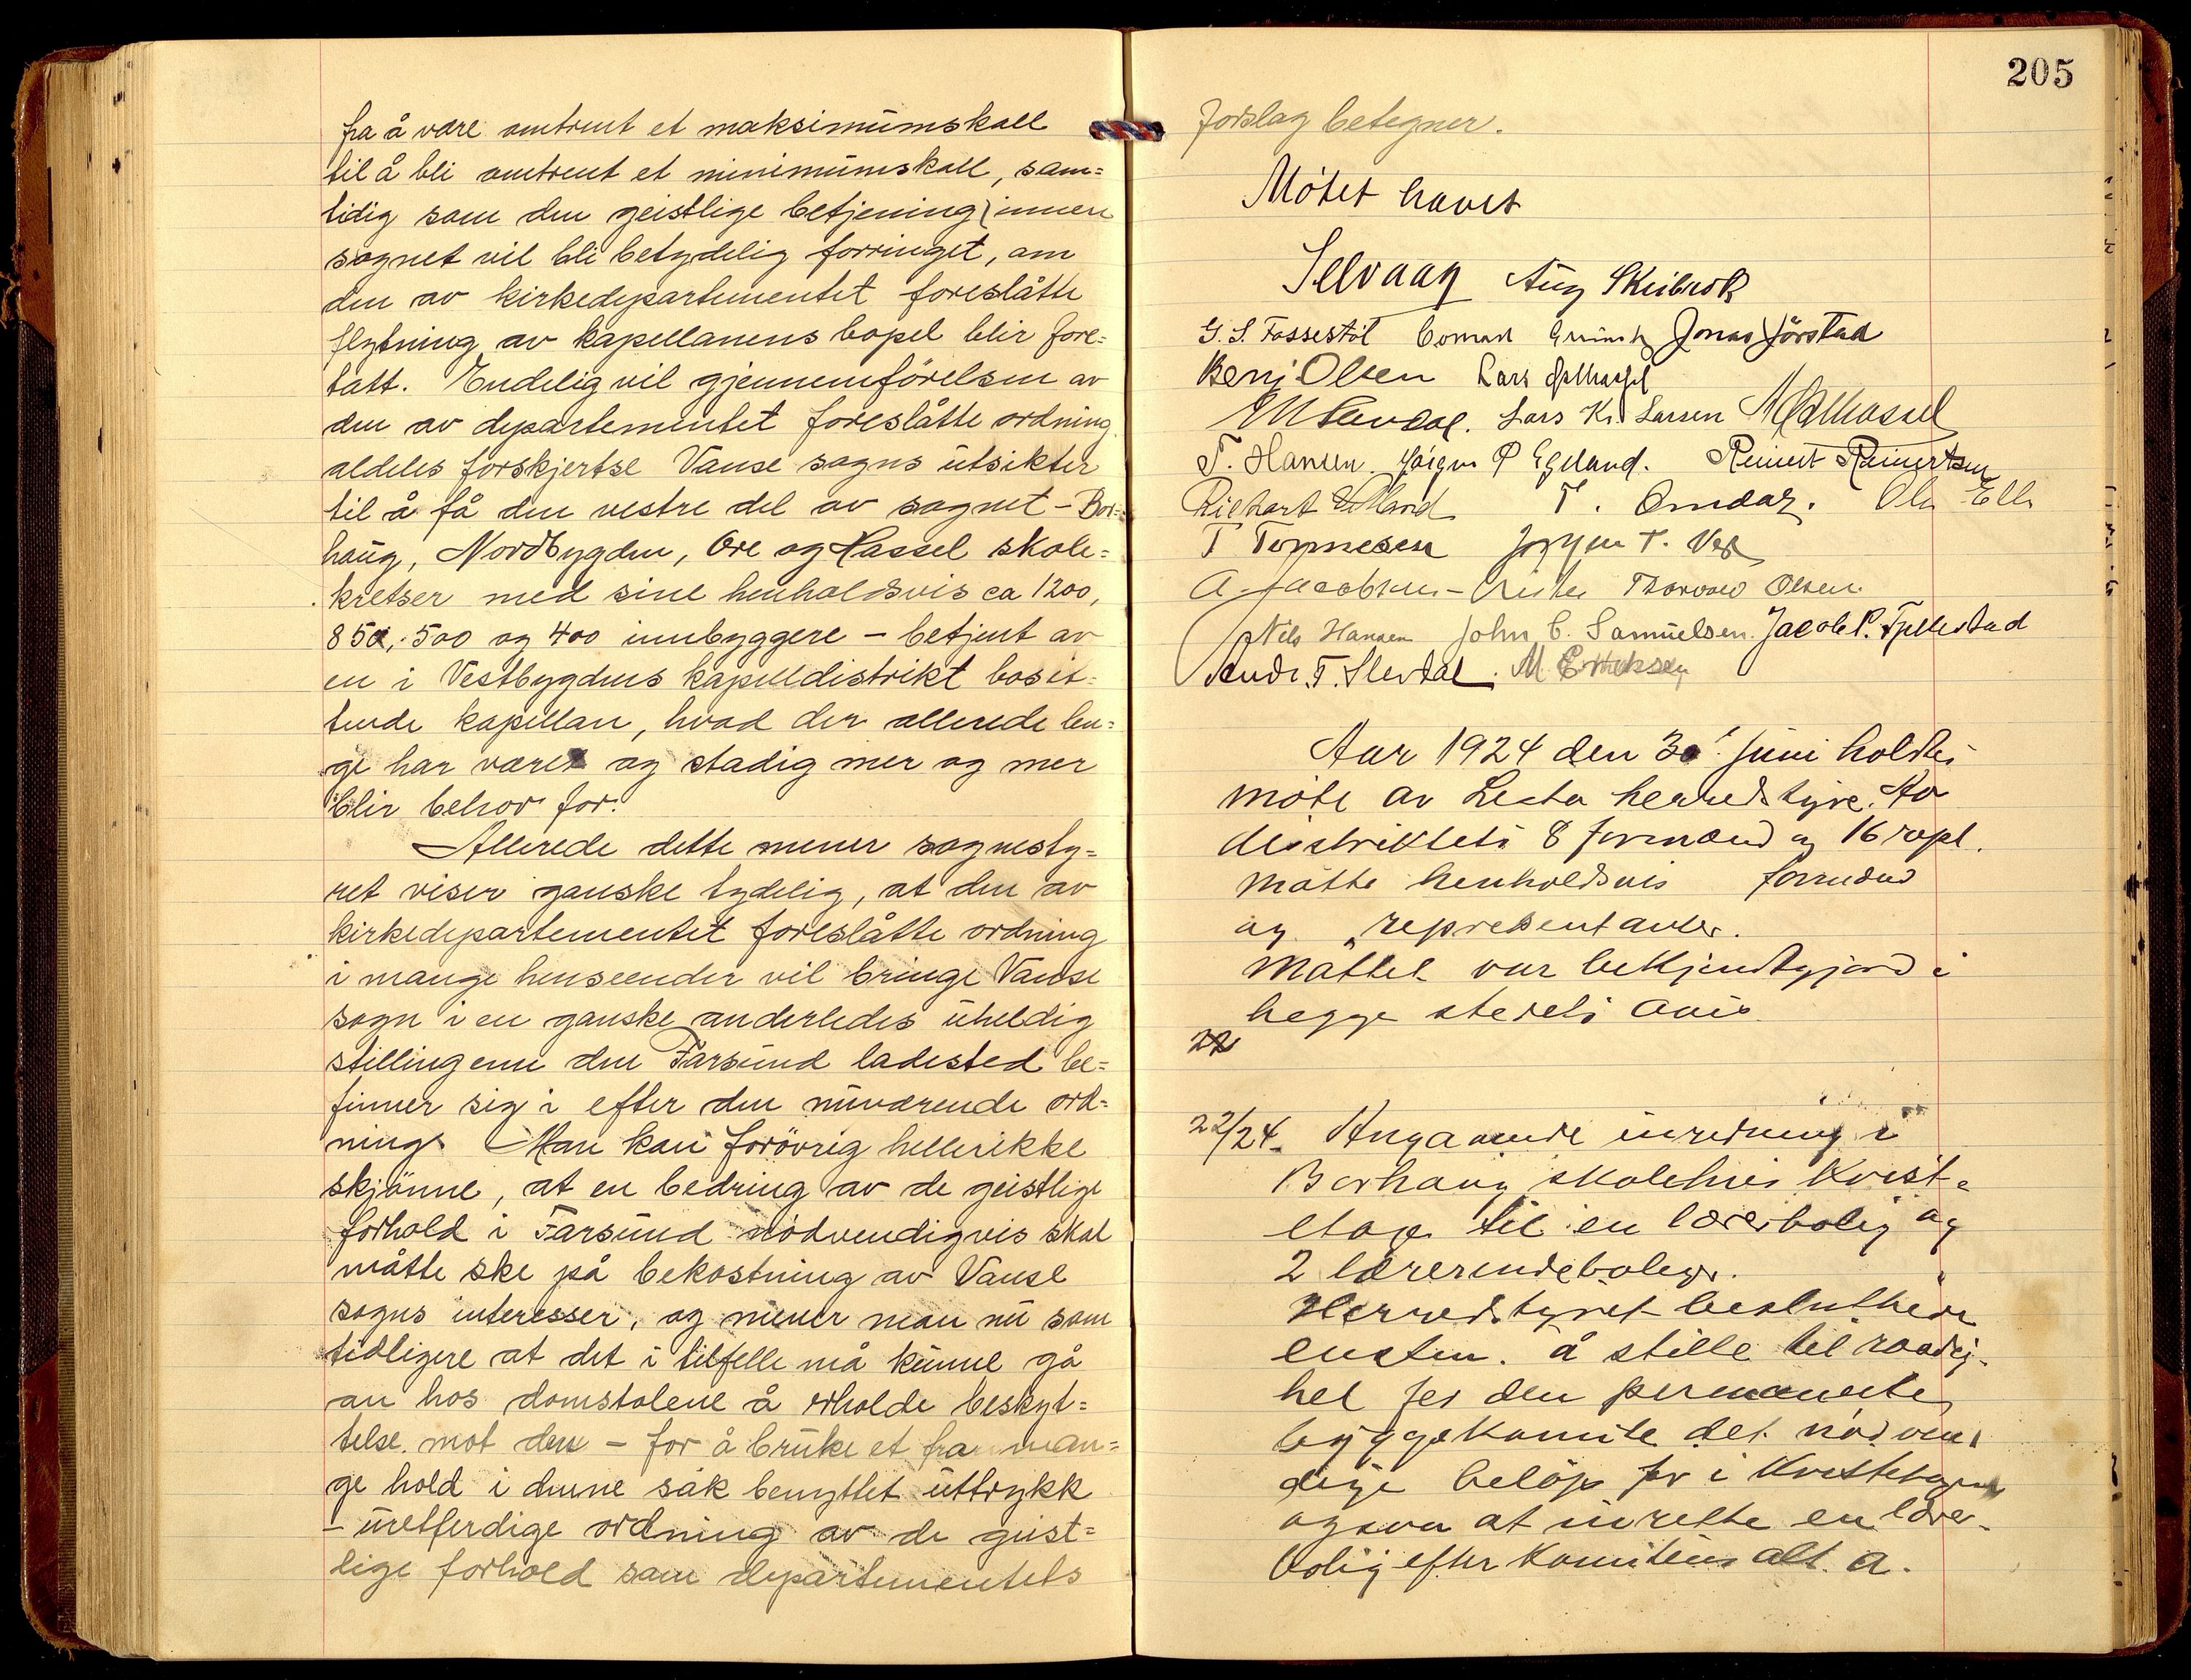 fra å være omtrent et maksimumskall
til å bli omtrent et minimumskall, sam=
tidig som den geistlige betjening innen
sognet vil bli betydelig forringet, om
den av kirkedepartementet foreslåtte
flytning av kapellanens bopel blir fore=
tatt. Endelig vil gjennemförelsen av
den av departementet foreslåtte ordning
aldeles forskjertse Vanse sogns utsikter
til å få den vestre del av sognet - Bor=
haug, Nordbygden, Ore og Hassel skole=
kretser med sine henholdsvis ca 1200,
850, 500 og 400 innbyggere - betjent av
en i Vestbygdens kapelldistrikt bosit=
tende kapellan, hvad der allerede len=
ge har været og stadig mer og mer
blir behov for.
Allerede dette mener sognesty=
ret viser ganske tydelig, at den av
kirkedepartementet foreslåtte ordning
i mange henseender vil bringe Vanse
sogn i en ganske anderledes uheldig
stilling enn den Farsund ladested be=
finner sig i efter den nuværende ord=
ning. Man kan forövrig heller ikke
skjönne, at en bedring av de geistlige
forhold i Farsund nödvendigvis skal
måtte ske på bekostning av Vanse
sogns interesser, og mener man nu som
tidligere at det i tilfelle må kunne gå
an hos domstolene å erholde beskyt=
telse mot den - for å bruke et fra man=
ge hold i denne sak benyttet uttrykk
- uretferdige ordning av de geist=
lige forhold som departementets
205
forslag betegner.
Mötet hævet
Selvaag Aug Skeibrok
G. S. Fossestöl Jonas Jörstad
Benj Olsen Lars
Lars Kr. Larsen
T. Hansen. Egeland. Reinert Reinertsen
T. Omdal. Ole
T Tönnesen T.
A. Jacobsen - Thorvald Olsen.
Nils Hansen John C. Samuelsen. Jacob P. Fjellestad
Andr. T. Slevdal. M Eriksen
Aar 1924 den 30' juni holdtes
möte av Lista herredstyre. Av
distriktets 8 formænd og 16 repr.
mötte henholdsvis formænd
og representanter.
Möttet var bekjendtgjord i
begge steders avis.
22
22/24. Angaaende inredning i
Borhaug skolehus kvist=
etage til en lærerbolig og
2 lærerindeboliger.
Herredstyret besluttede
enstem. å stille til raadig-
het for den permanente
byggekomite det nödven-
dige belöp for i
ogsaa at inrette en lærer-
bolig efter komiteens alt. a.